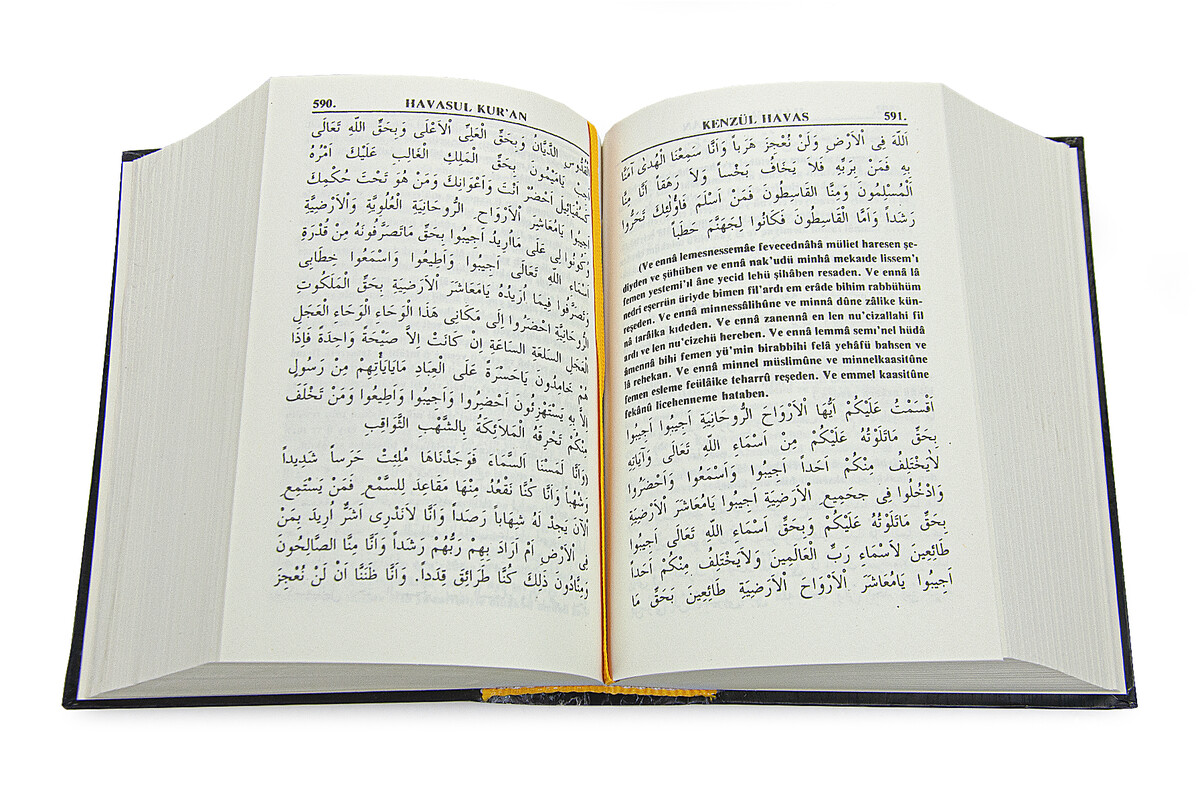 590. HAVASUL KUR'AN
القُدُّوسِ الدَّيَّانُ وَبِحَقِّ الْعَلِيِّ الْاَعْلَى وَبِحَقِّ اللَّهِ تَعَالَى
اَجِبْ يَامَيْمُونَ بِحَقِّ الْمَلِكِ الْغَالِبِ عَلَيْكَ اَمْرُهُ
اَحْضَرْ اَنْتَ وَاَعْوَانِكَ وَمَنْ هُوَ تَحْتَ حُكْمِكَ
اَجِيبُوا يَامُعَاشِرَ الْاَرْوَاحِ الرُّوحَانِيَّةِ الْعُلْوِيَّةِ وَالْاَرْضِيَّةِ
وَكُونُوا لِى عَلَى مَااُرِيدُ اَجِيبُوا بِحَقِّ مَاتَصَرَّفُونَهُ مِنْ قُدْرَةِ
اَسْمَاءِ اللَّهِ تَعَالَى اَجِيبُوا وَاَطِيعُوا وَاسْمَعُوا خِطَابِى
وَتَصَرَّفُوا فِيمَا اُرِيدُهُ يَامَعَاشَرَ الْاَرْضِيَّةِ بِحَقِّ الْمَلَكُوتِ
الرُّوحَانِيَّةِ احْضَرُوا اِلَى مَكَانِى هَذَا الْوَحَاءِ الْوَحَاءِ الْعَجَلِ
الْعَجَلِ السَّاعَةِ السَّاعَةِ اِنْ كَانَتْ اِلاَّ صَيْحَةً وَاحِدَةً فَاِذَا
هُمْ خَامِدُونَ يَاحَسْرَةً عَلَى الْعِبَادِ مَايَأْتِهِمْ مِنْ رَسُولٍ
اِلاَّ بِهِ يَسْتَهْزِئُونَ اَحْضِرُوا وَاَجِيبُوا وَاَطِيعُوا وَمَنْ تَخْلَفَ
مِنْكُمْ تَحْرِقَهُ الْمَلَائِكَةُ بِالشُّهْبِ الثَّوَاقِبِ
(وَاَنَّا لَمَسْنَا السَّمَاءَ فَوَجَدْنَاهَا مُلِئِتْ حَرَساً شَدِيداً
وَشُهُباً وَاَنَّا كُنَّا نَقْعُدُ مِنْهَا مَقَاعِدَ لِلسَّمْعِ فَمَنْ يَسْتَمِعِ
الْآنَ يَجِدْ لَهُ شِهَاباً رَصَداً وَاَنَّا لاَنَدْرِى اَشَرٌّ اُرِيدَ بِمَنْ
فِى الْاَرْضِ اَمْ اَرَادَ بِهِمْ رَبُّهُمْ رَشَداً وَاَنَّا مِنَّا الصَّالِحُونَ
وَمِنَّادُونَ ذَلِكَ كُنَّا طَرَائِقَ قِدَداً. وَاَنَّا ظَنَنَّا اَنْ لَنْ نُعْجِزَ
KENZÜL HAVAS 591.
اللَّهَ فِى الْاَرْضِ وَلَنْ نُعْجِزَ هَرَباً وَاَنَّا سَمِعْنَا الْهُدٰى اٰمَنَّا
بِهِ فَمَنْ بِرَبِّهِ فَلاَ يَخَافُ بَخْساً وَلاَ رَهَقاً اَنَّا مِنَّا
الْمُسْلِمُونَ وَمِنَّا الْقَاسِطُونَ فَمَنْ اَسْلَمَ فَاُولَئِكَ تَحَرَّوْا
رَشَداً وَاَمَّا الْقَاسِطُونَ فَكَانُوا لِجَهَنَّمَ حَطَباً
(Ve ennâ lemesnessemâe fevecednâhâ müliet haresen şe-
diyden ve şühüben ve ennâ nak'udü minhâ mekaıde lissem'ı
femen yestemi'ıl âne yecid lehü şihâben resaden. Ve ennâ lâ
nedrî eşerrün üriyde bimen fil'ardı em erâde bihim rabbühüm
reşeden. Ve ennâ minnessâlihûne ve minnâ dûne zâlike kün-
nâ tarâika kıdeden. Ve ennâ zanennâ en len nu'cizallahi fil
ardı ve len nu'cizehü hereben. Ve ennâ lemmâ semı'nel hüdâ
âmennâ bihi femen yü'min birabbihi felâ yehâfü bahsen ve
lâ rehekan. Ve ennâ minnel müslimûne ve minnelkaasitûne
femen esleme feülâike teharrû reşeden. Ve emmel kaasitûne
fekânû licehenneme hataben.
اَقْسَمْتُ عَلَيْكُمْ اَيُّهَا الْاَرْوَاحَ الرُّوحَانِيَّةِ اَجِيبُوا اَجِيبُوا
بِحَقِّ مَاتَلَوْتُهُ عَلَيْكُمْ مِنْ اَسْمَاءِ اللَّهِ تَعَالَى وَاٰيَاتِهِ
لاَيَخْتَلِفُ مِنْكُمْ اَحَداً اَجِيبُوا وَاَسْمَعُوا وَاَحْضَرُوا
وَادْخُلُوا فِى جَحِيمِ الْاَرْضِيَّةِ اَجِيبُوا يَامُعَاشَرَ الْاَرْضِيَّةِ
بِحَقِّ مَاتَلَوْتُهُ عَلَيْكُمْ وَبِحَقِّ اَسْمَاءِ اللَّهِ تَعَالَى اَجِيبُوا
طَائِعِينَ لاَسْمَاءِ رَبِّ الْعَالَمِينَ وَلاَيَخْتَلِفُ مِنْكُمْ اَحَداً
اَجِيبُوا يَامُعَاشَرَ الْاَرْوَاحَ الْاَرَضِيَّةِ طَائِعِينَ بَحَقِّ مَا